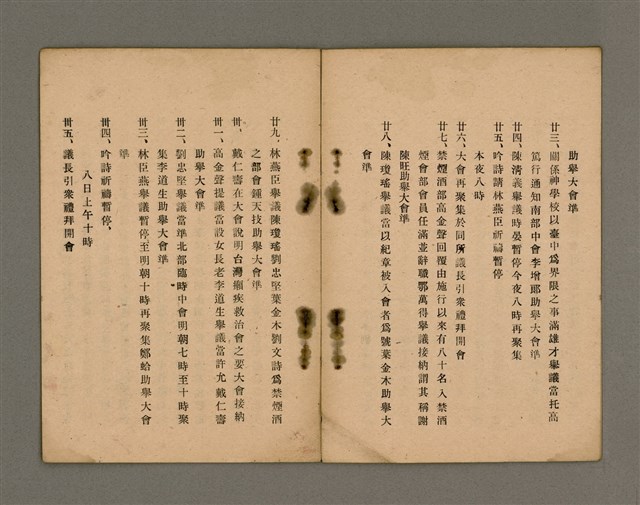 助舉大會準
廿三、關係神學校以臺中爲界限之事滿雄才舉議當托高
篤行通知南部中會李增耶助舉大會準
廿四、陳清義舉議時晏暫停今夜八時再聚集
廿五、吟詩請林燕臣祈禱暫停
本夜八時
廿六、大會再聚集於同所議長引衆禮拜開會
廿七、禁煙酒部高金聲回覆由施行以來有八十名入禁酒
煙會部會員任滿並辭職鄂萬得舉議接納謂其稱謝
陳旺助舉大會準
廿八、陳瓊瑤舉議當以紀章被入會者爲號葉金木助舉大
會準
廿九、林燕臣舉議陳瓊瑤劉忠堅葉金木劉文詩爲禁煙酒
之部會鍾天技助舉大會準
卅、戴仁壽在大會說明台灣癩疾救治會之要大會接納
卅一、高金聲提議當設女長老李道生舉議當許允戴仁壽
助舉大會準
卅二、劉忠堅舉議當準北部臨時中會明朝七時至十時聚
集李道生助舉大會準
卅三、林臣燕舉議暫停至明朝十時再聚集鄭蛤助舉大會
準
卅四、吟詩祈禱暫停、
八日上午十時
卅五、議長引衆禮拜開會